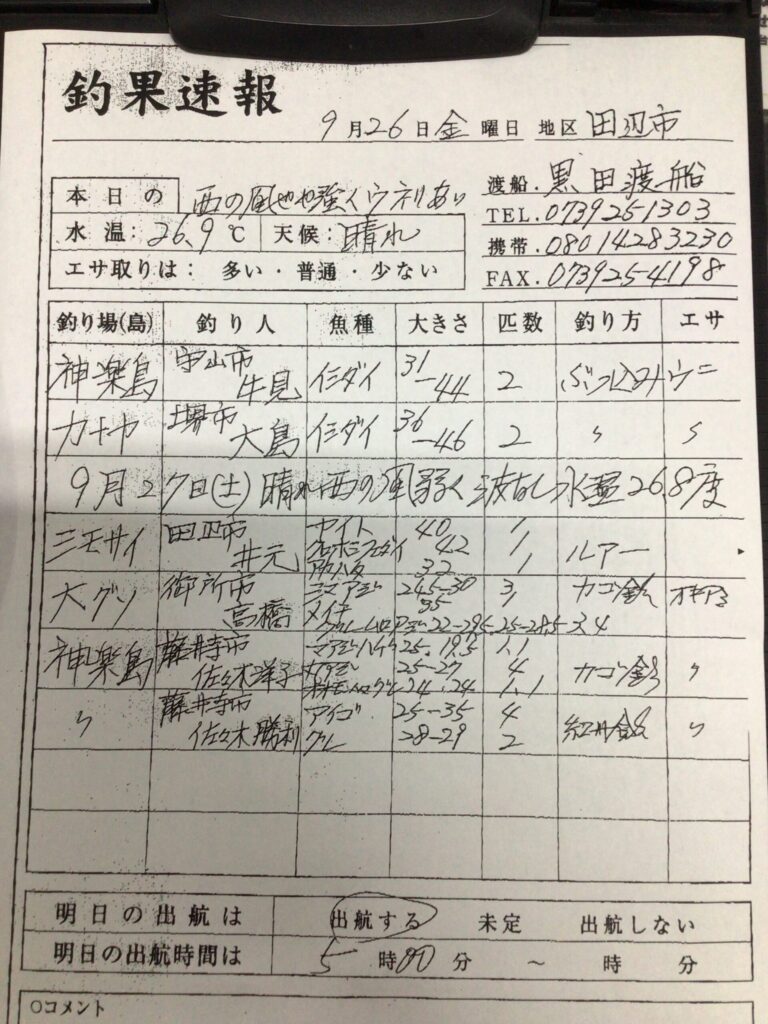 釣果速報
9月26日金曜日 地区 田辺市
本日の 西の風やや強くウネリあり
水温: 26.9℃ 天候: 晴れ
エサ取りは: 多い・普通・少ない
渡船. 黒田渡船
TEL. 0739251303
携帯. 08014283230
FAX. 0739254198
釣り場(島) 釣り人 魚種 大きさ 匹数 釣り方 エサ
神楽島 守山市 牛見 イシダイ 31-44 2 ぶっ込み ウニ
カナヤ 堺市 大島 イシダイ 36-46 2 〃 〃
9月27日(土) 晴れ 西の風弱く 波なし 水温26.8度
三モサイ 田辺市 井元 ヤイト 40 1 ルアー
42 1
アカハタ 32 1
大グソ 御所市 高橋 24.5-30 3 カゴ釣 オキアミ
メイチ 35 1
22-29.5 25-28.5 3.4
神楽島 藤井寺市 佐々木洋子 25.19.5 1.1 カゴ釣 〃
25-27 4
24.24 1.1
〃 藤井寺市 佐々木勝利 アイゴ 25-35 4 〃
グレ 28-29 2
明日の出航は 出航する 未定 出航しない
明日の出航時間は 5時00分 ~ 時 分
○コメント